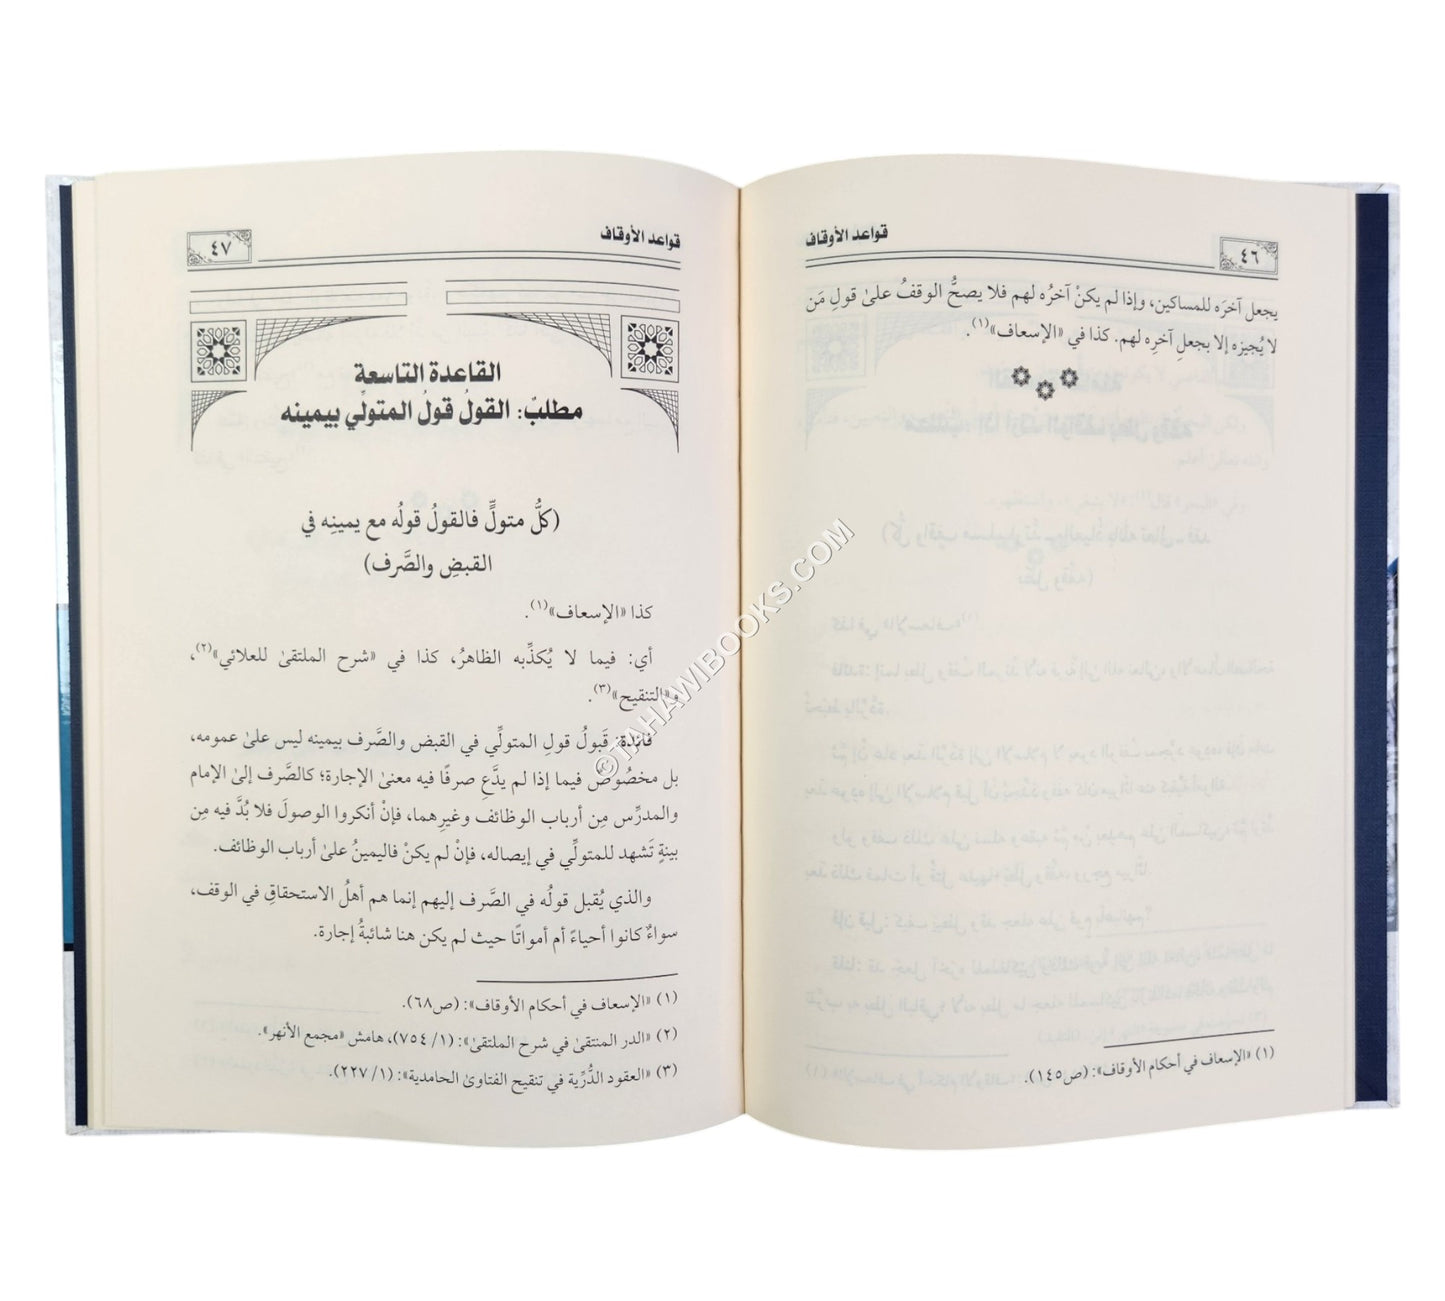 قواعد الأوقاف
٤٦
يجعل آخرَه للمساكين، وإذا لم يكنْ آخرُه لهم فلا يصحُّ الوقفُ علىٰ قولِ مَن
لا يُجيزه إلا بجعلِ آخرِه لهم. كذا في «الإسعاف»(١).
(١) «الإسعاف في أحكام الأوقاف»: (ص١٤٥).
قواعد الأوقاف
٤٧
القاعدة التاسعة
مطلبٌ: القولُ قولُ المتولِّي بيمينه
(كلُّ متولٍّ فالقولُ قولُه مع يمينِه في
القبضِ والصَّرف)
كذا «الإسعاف»(١).
أي: فيما لا يُكذِّبه الظاهرُ، كذا في «شرح الملتقىٰ للعلائي»(٢)،
و«التنقيح»(٣).
فائدة: قَبولُ قولِ المتولِّي في القبض والصَّرف بيمينه ليس علىٰ عمومه،
بل مخصُوصٌ فيما إذا لم يدَّعِ صرفًا فيه معنىٰ الإجارة؛ كالصَّرف إلىٰ الإمام
والمدرِّس مِن أرباب الوظائف وغيرِهما، فإنْ أنكروا الوصولَ فلا بُدَّ فيه مِن
بينةٍ تَشهد للمتولِّي في إيصاله، فإنْ لم يكنْ فاليمينُ علىٰ أرباب الوظائف.
والذي يُقبل قولُه في الصَّرف إليهم إنما هم أهلُ الاستحقاقِ في الوقف،
سواءٌ كانوا أحياءً أم أمواتًا حيث لم يكن هنا شائبةُ إجارة.
(١) «الإسعاف في أحكام الأوقاف»: (ص٦٨).
(٢) «الدر المنتقىٰ في شرح الملتقىٰ»: (١/ ٧٥٤)، هامش «مجمع الأنهر».
(٣) «العقود الدُّرِّية في تنقيح الفتاوىٰ الحامدية»: (١/ ٢٢٧).
©TAHAWIBOOKS.COM